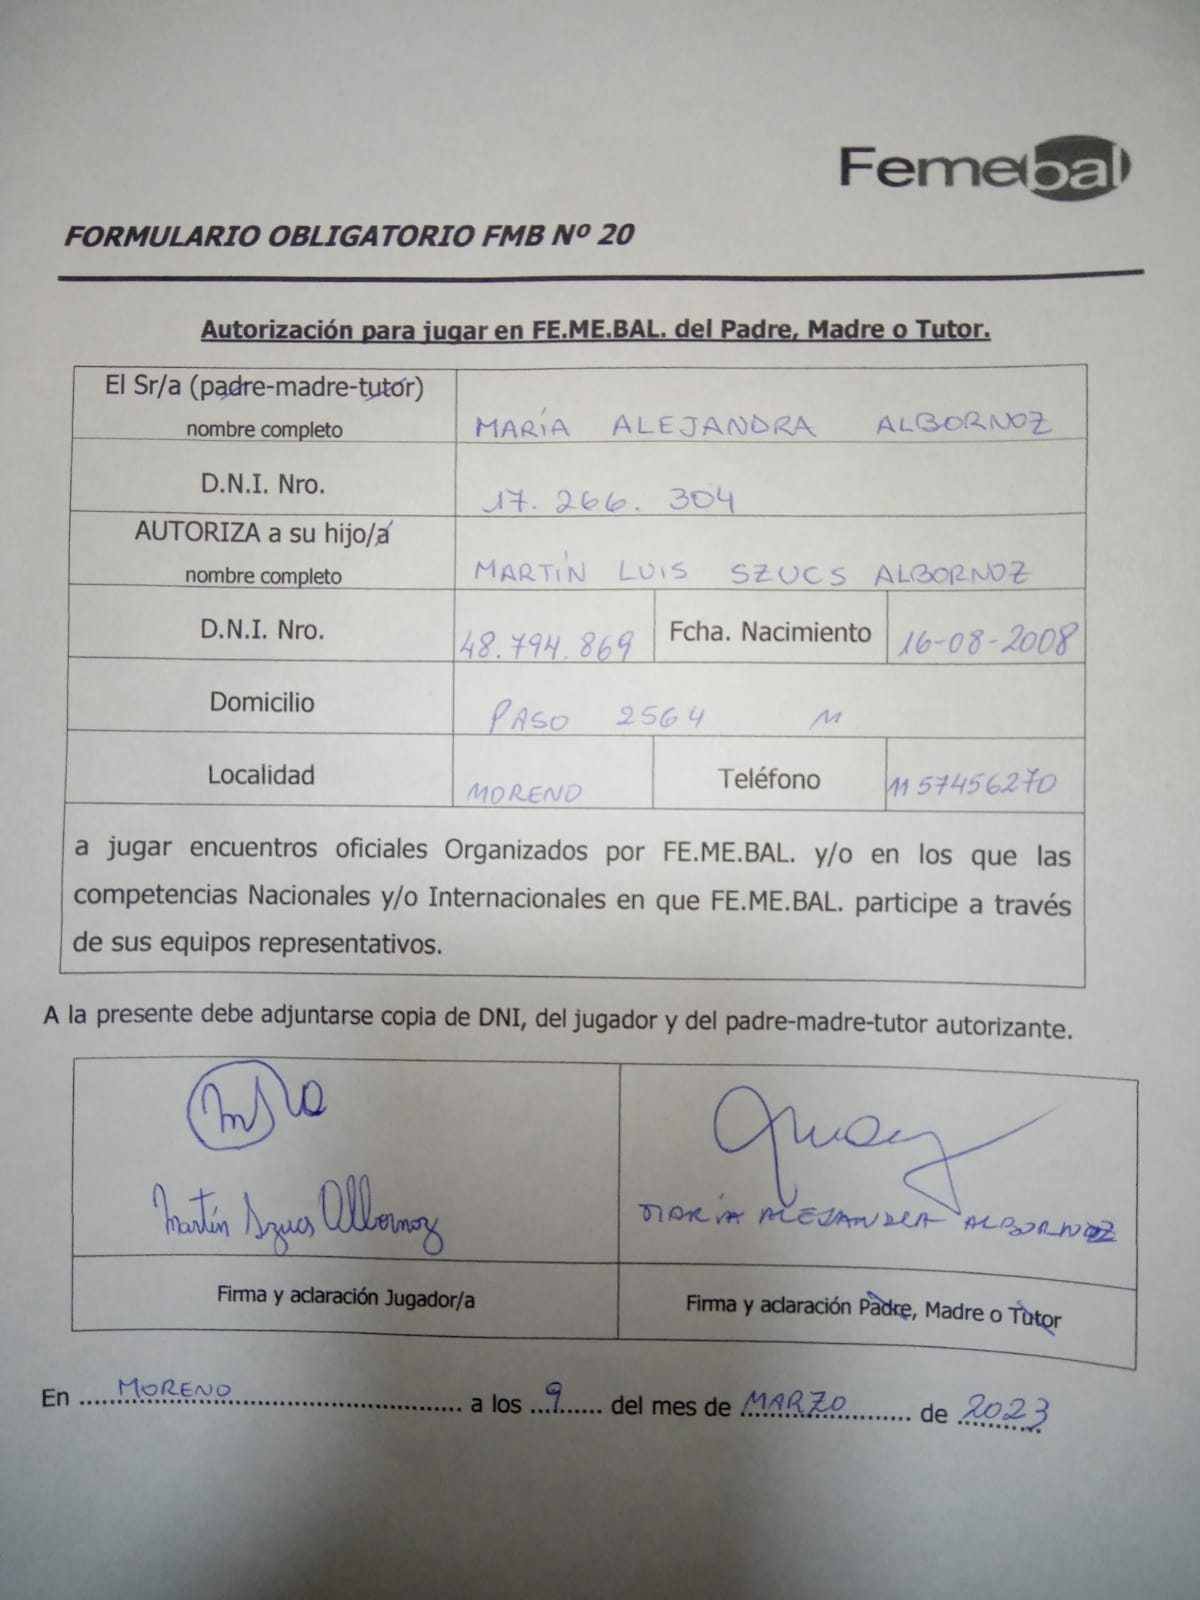 Femebal
FORMULARIO OBLIGATORIO FMB Nº 20
Autorización para jugar en FE.ME.BAL. del Padre, Madre o Tutor.
El Sr/a (padre-madre-tutor)
nombre completo
MARÍA ALEJANDRA ALBORNOZ
D.N.I. Nro.
17.266.304
AUTORIZA a su hijo/a
nombre completo
MARTÍN LUIS SZUCS ALBORNOZ
D.N.I. Nro.
48.794.869
Fcha. Nacimiento
16-08-2008
Domicilio
PASO 2564
Localidad
MORENO
Teléfono
1157456270
a jugar encuentros oficiales Organizados por FE.ME.BAL. y/o en los que las
competencias Nacionales y/o Internacionales en que FE.ME.BAL. participe a través
de sus equipos representativos.
A la presente debe adjuntarse copia de DNI, del jugador y del padre-madre-tutor autorizante.
Martín Szucs Albornoz
MARÍA ALEJANDRA ALBORNOZ
Firma y aclaración Jugador/a
Firma y aclaración Padre, Madre o Tutor
En MORENO a los 9 del mes de MARZO de 2023